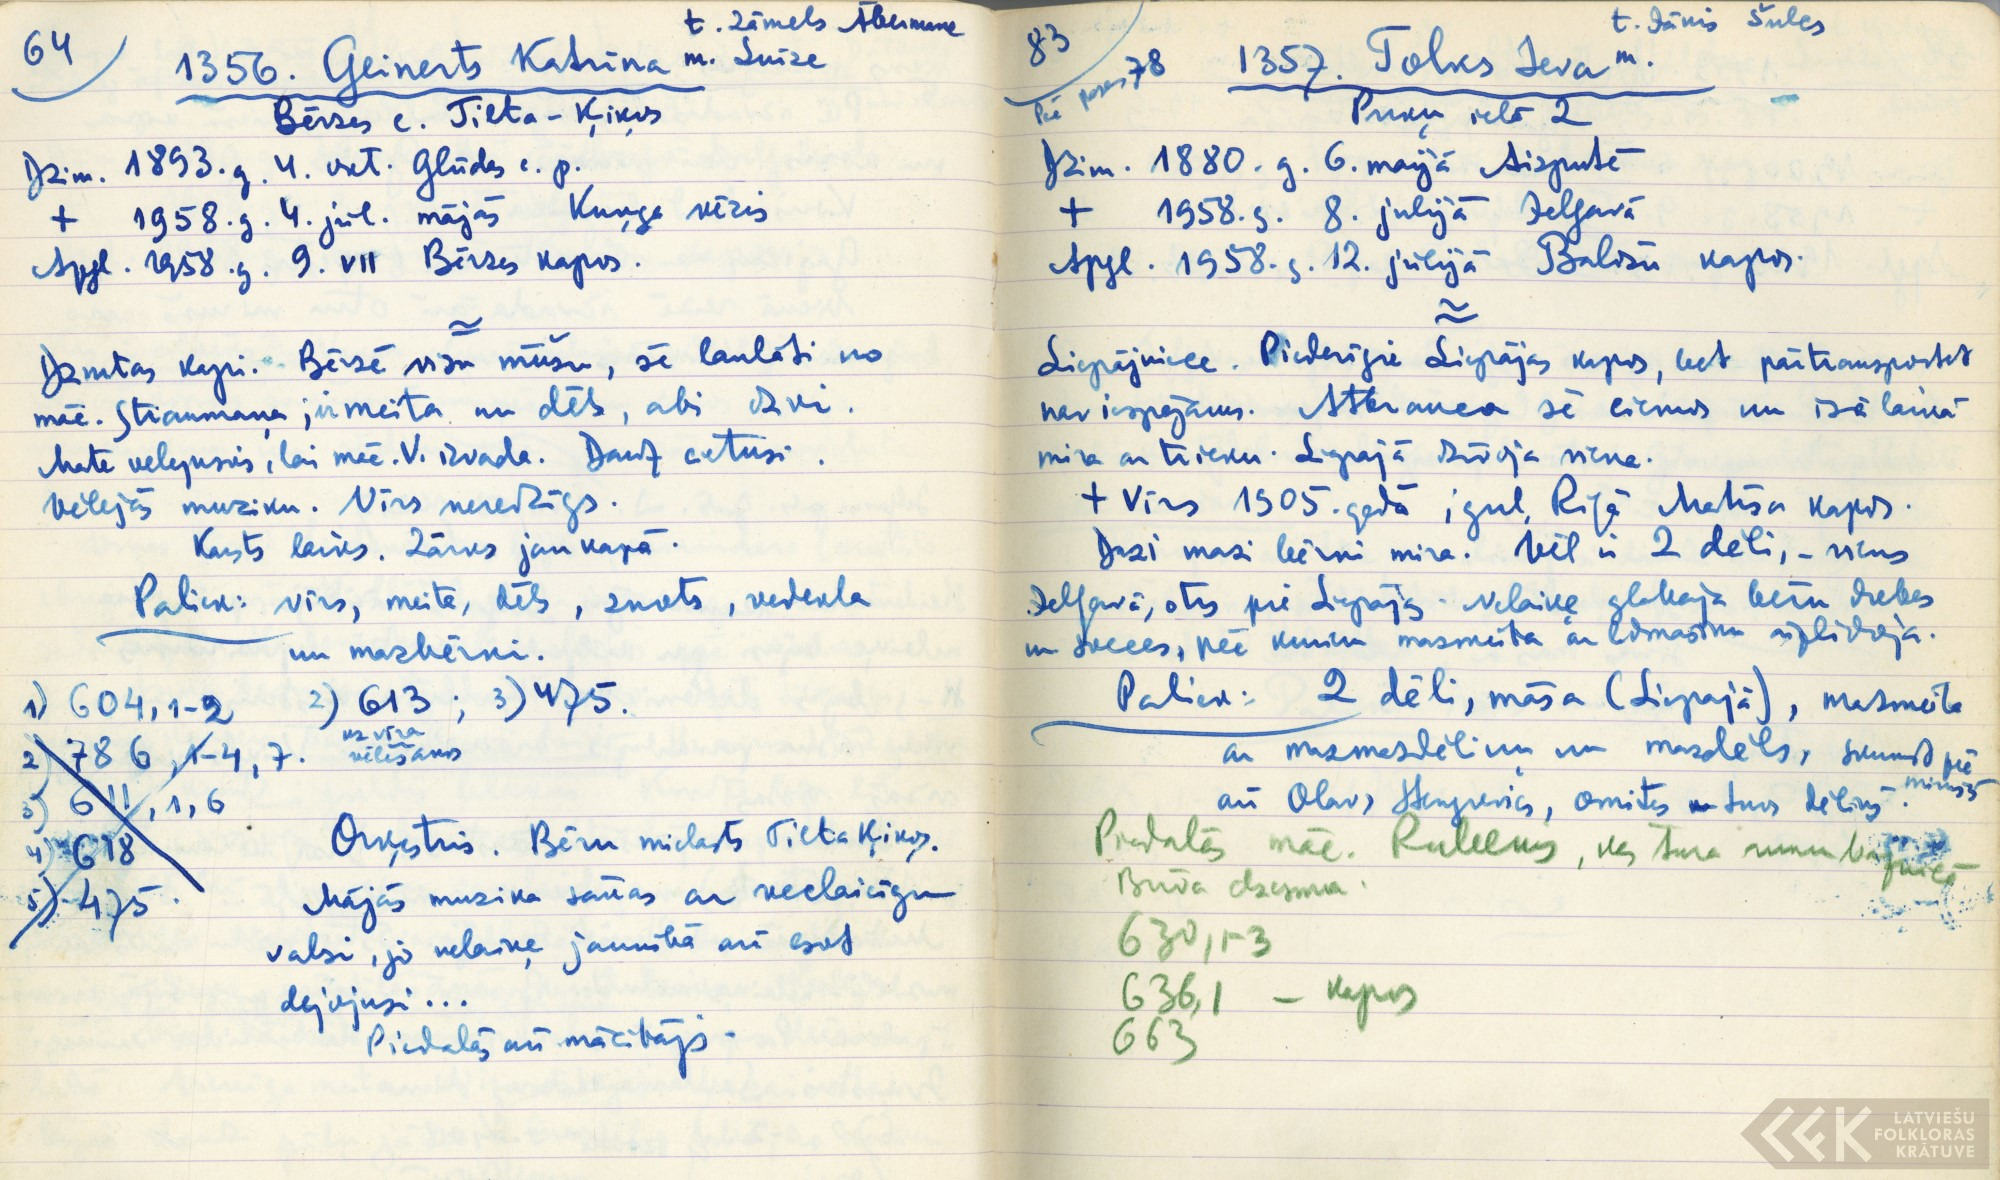 64
t. Zāmels Ābermane
1356. Geinerts Katrīna m. Luize
Bērzes c. Tilta-Ķiķos
Dzim. 1893.g. 4. okt. Glūdas c. p.
+ 1958.g. 4. jūl. mājās Kuņģa vēzis
Apgl. 1958.g. 9. VII Bērzes kapos.
Dzimtas kapi. Bērzē visu mūžu, sē laulāti no
māc. Straumaņa; ir meita un dēls, abi dzīvi.
Māte vēlējusies, lai māc. V. izvada. Daudz cietusi.
Vēlējās muziku. Vīrs neredzīgs.
Karsts laiks. Zārks jau kapā.
Paliek: vīrs, meita, dēls, znots, vedekla
un mazbērni.
1) 604, 1-2 2) 613; 3) 475.
uz vīra
vēlēšanos
2) 786, 1-4, 7.
3) 611, 1, 6
4) 618
5) 475.
Orķestris. Bēru mielasts Tilta Ķiķos.
Mājās muzika saņas ar veclaicīgu
valsi, jo nelaiķe jaunībā arī esot
dejojusi...
Piedalās arī mācītājs.
83
78
t. Jānis Šulcs
1357. Tolks Ieva m.
Puķu ielā 2
Dzim. 1880.g. 6. maijā Aizputē
+ 1958.g. 8. jūlijā Jelgavā
Apgl. 1958.g. 12. jūlijā Baložu kapos.
Liepājniece. Piederīgie Liepājas kapos, bet pārtransportēt
nav iespējams. Atbrauca sē ciemos un īsā laikā
mira ar trieku. Liepājā dzīvoja viena.
+ Vīrs 1905. gadā, gul Rīgā Matīsa kapos.
Divi mazi bērni mira. Vēl ir 2 dēli, - viens
Jelgavā, otrs pie Liepājas Nelaiķe glabāja bēru drēbes
un sveces, pēc kurām mazmeita ar lidmašīnu aizlidoja.
Paliek: 2 dēli, māsa (Liepājā), mazmeita
ar mazmazdēliņu un mazdēls, skumst pie
miņas
arī Olavs Hengevics, omītes dēliņš.
Piedalās māc. Rullens, kas tura runu baznīcā
Buva dziesma.
630, 1-3
636, 1 - kapos
663
LATVIEŠU
FOLKLORAS
KRĀTUVE